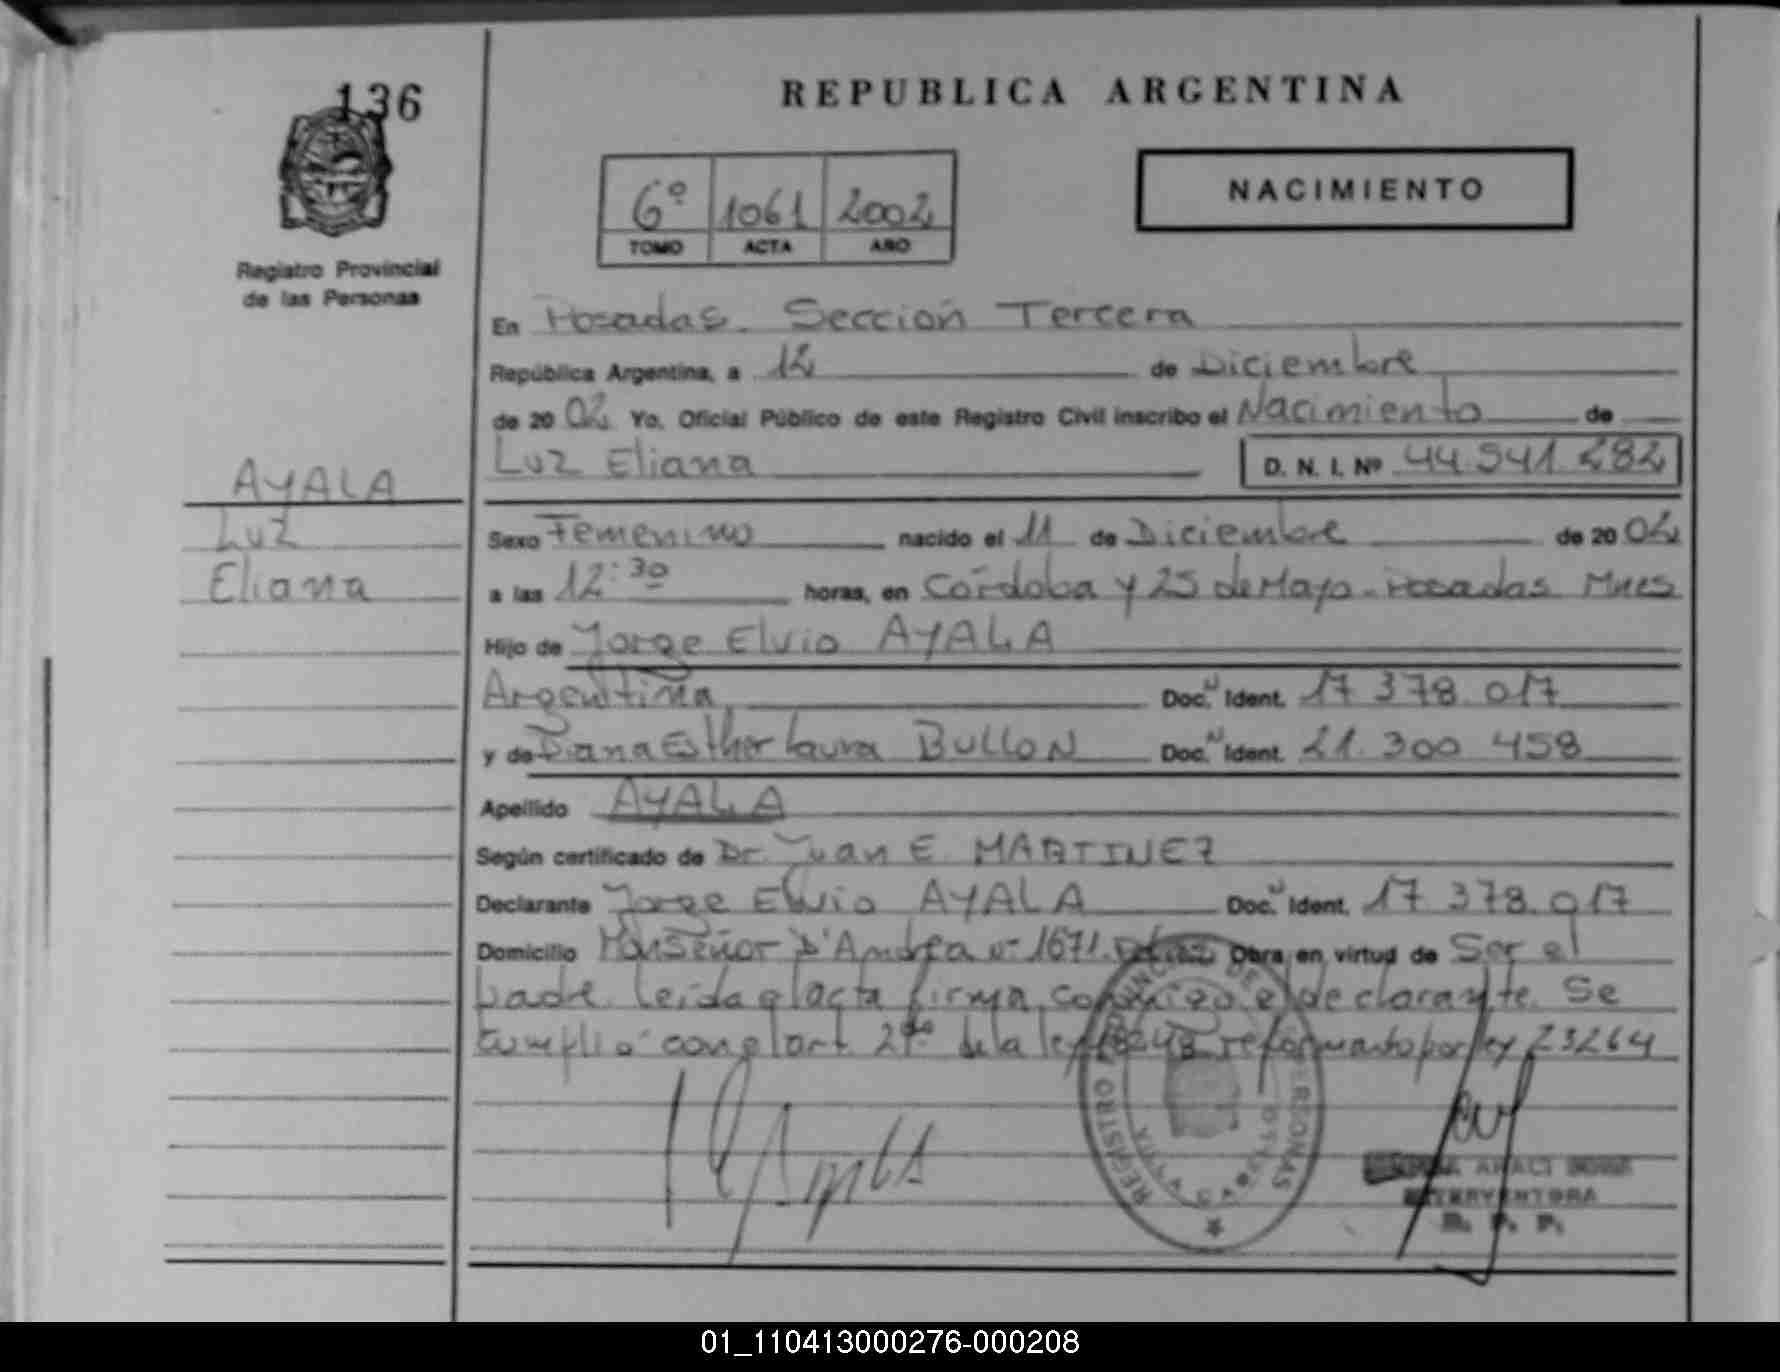 136
REPUBLICA ARGENTINA
6º 1061 2002
TOMO ACTA AÑO
NACIMIENTO
Registro Provincial
de las Personas
En Posadas. Sección Tercera
República Argentina, a 12 de Diciembre
de 20 02 Yo. Oficial Público de este Registro Civil inscribo el Nacimiento de
Luz Eliana D. N. I. Nº 44.541.282
AYALA
Luz
Eliana
Sexo Femenino nacido el 11 de Diciembre de 20 02
a las 12:30 horas, en Córdoba y 25 de Mayo - Posadas Mnes
Hijo de Jorge Elvio AYALA
Argentina Doc. Ident. 17 378.017
y de Diana Esther Laura BULLON Doc. Ident. 21.300 458
Apellido AYALA
Según certificado de Dr. Juan E. MARTINEZ
Declarante Jorge Elvio AYALA Doc. Ident. 17 378.017
Domicilio Monseñor D'Andrea nº 1671. Obra en virtud de Ser el
padre. Leída el acta firma conmigo el declarante. Se
cumplió con el art. de la ley 18248 reformado por ley 23264
REGISTRO PROVINCIAL DE LAS PERSONAS
INTERVENTORA
R. P. P.
01_110413000276-000208